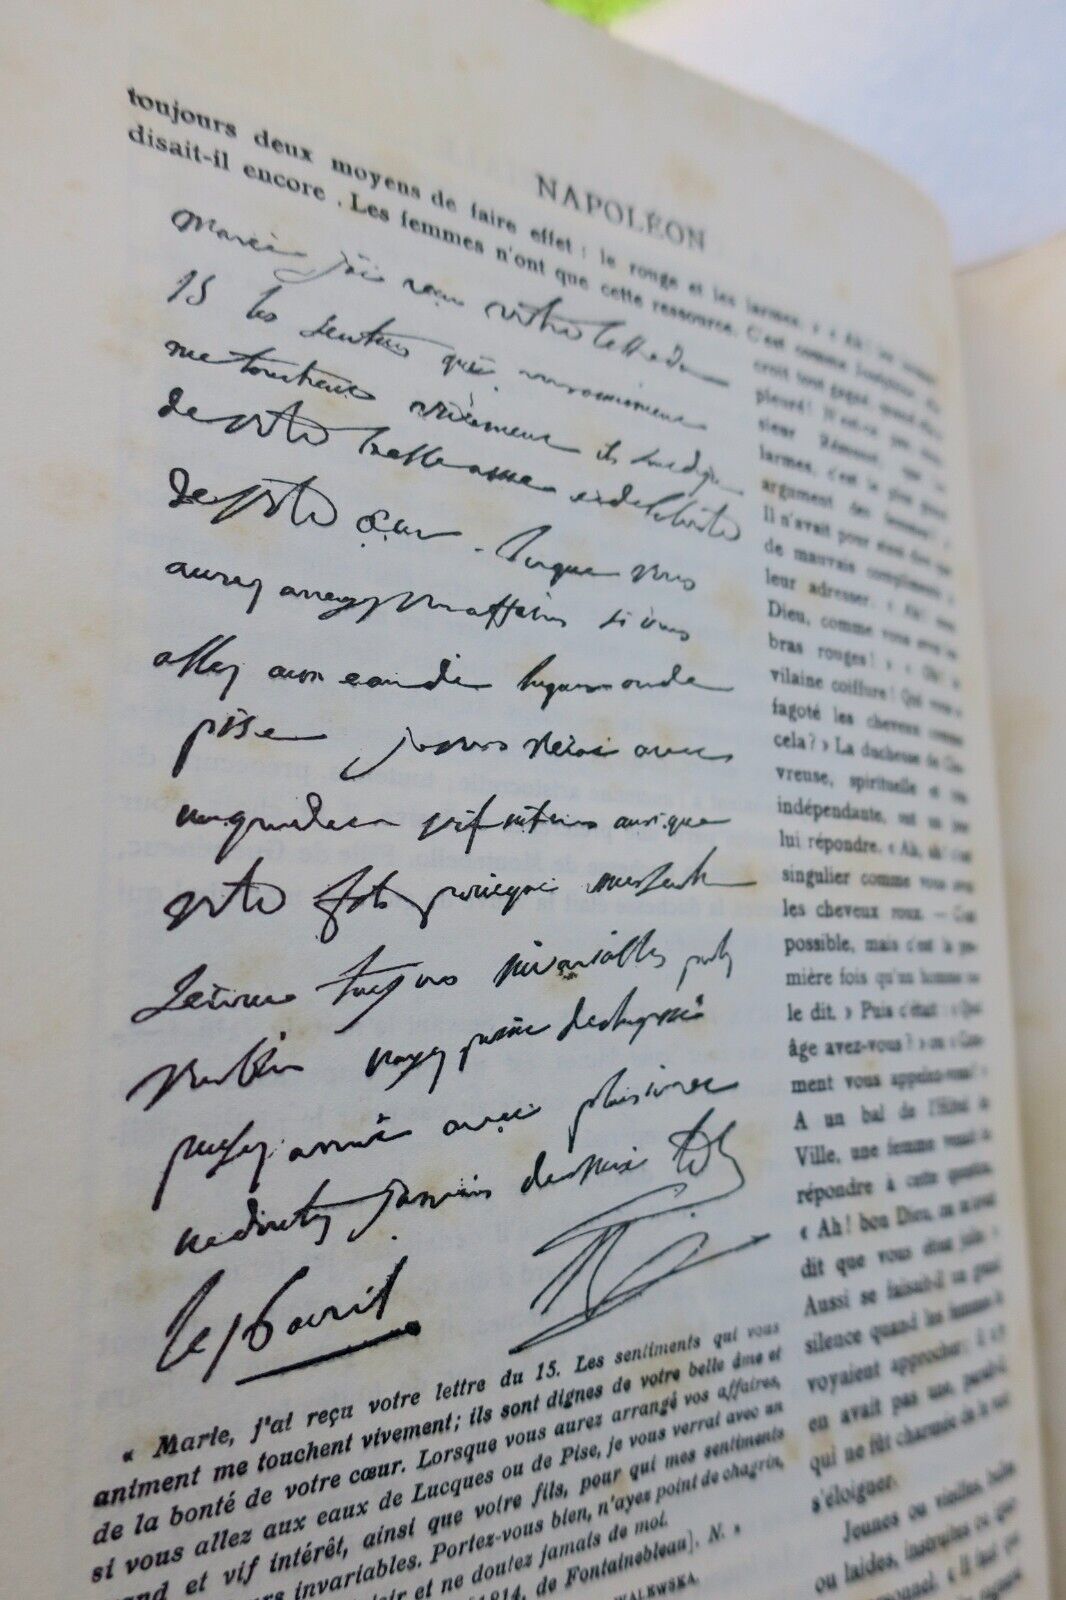 NAPOLÉON
toujours deux moyens de faire effet : le rouge et les larmes. » « Ah!
disait-il encore. Les femmes n'ont que cette ressource. C'est comme Joséphine,
croit tout gagné, quand
pleuré! N'est-ce pas,
sieur Rémusat, que les
larmes, c'est le plus grand
argument des femmes? »
Il n'avait pour ainsi dire que
de mauvais compliments à
leur adresser. « Ah! mon
Dieu, comme vous avez les
bras rouges! » « Oh! la
vilaine coiffure! Qui vous a
fagoté les cheveux comme
cela? » La duchesse de Che-
vreuse, spirituelle et très
indépendante, eut un jour
lui répondre. « Ah, ah! c'est
singulier comme vous avez
les cheveux roux. — C'est
possible, mais c'est la pre-
mière fois qu'un homme me
le dit. » Puis c'était : « Quel
âge avez-vous? » ou « Com-
ment vous appelez-vous? »
A un bal de l'Hôtel de
Ville, une femme venait de
répondre à cette question.
« Ah! bon Dieu, on m'avait
dit que vous étiez jolie »
Aussi se faisait-il un grand
silence quand les femmes le
voyaient approcher; il n'y
en avait pas une, paraît-il
qui ne fût charmée de le voir
s'éloigner.
Jeunes ou vieilles, belles
ou laides, instruites ou
« Il faut qui
Marie j'ai reçu votre lettre du
15 les sentimens qui vous animent
me touchent vivement ils sont dignes
de votre belle ame et de la bonté
de votre cœur. Lorsque vous
aurez arrangé vos affaires si vous
allez aux eaux de Lucques ou de
pise je vous verrai avec
un grand et vif intérêt ainsi que
votre fils pour qui mes sentimens
seront toujours invariables portez
vous bien n'ayez point de chagrin
pensez à moi avec plaisir et
ne doutez jamais de moi
le 16 avril
N
« Marie, j'ai reçu votre lettre du 15. Les sentiments qui vous
animent me touchent vivement; ils sont dignes de votre belle âme et
de la bonté de votre cœur. Lorsque vous aurez arrangé vos affaires,
si vous allez aux eaux de Lucques ou de Pise, je vous verrai avec un
grand et vif intérêt, ainsi que votre fils, pour qui mes sentiments
invariables. Portez-vous bien, n'ayez point de chagrin,
et ne doutez jamais de moi.
1814, de Fontainebleau]. N. »
WALEWSKA.